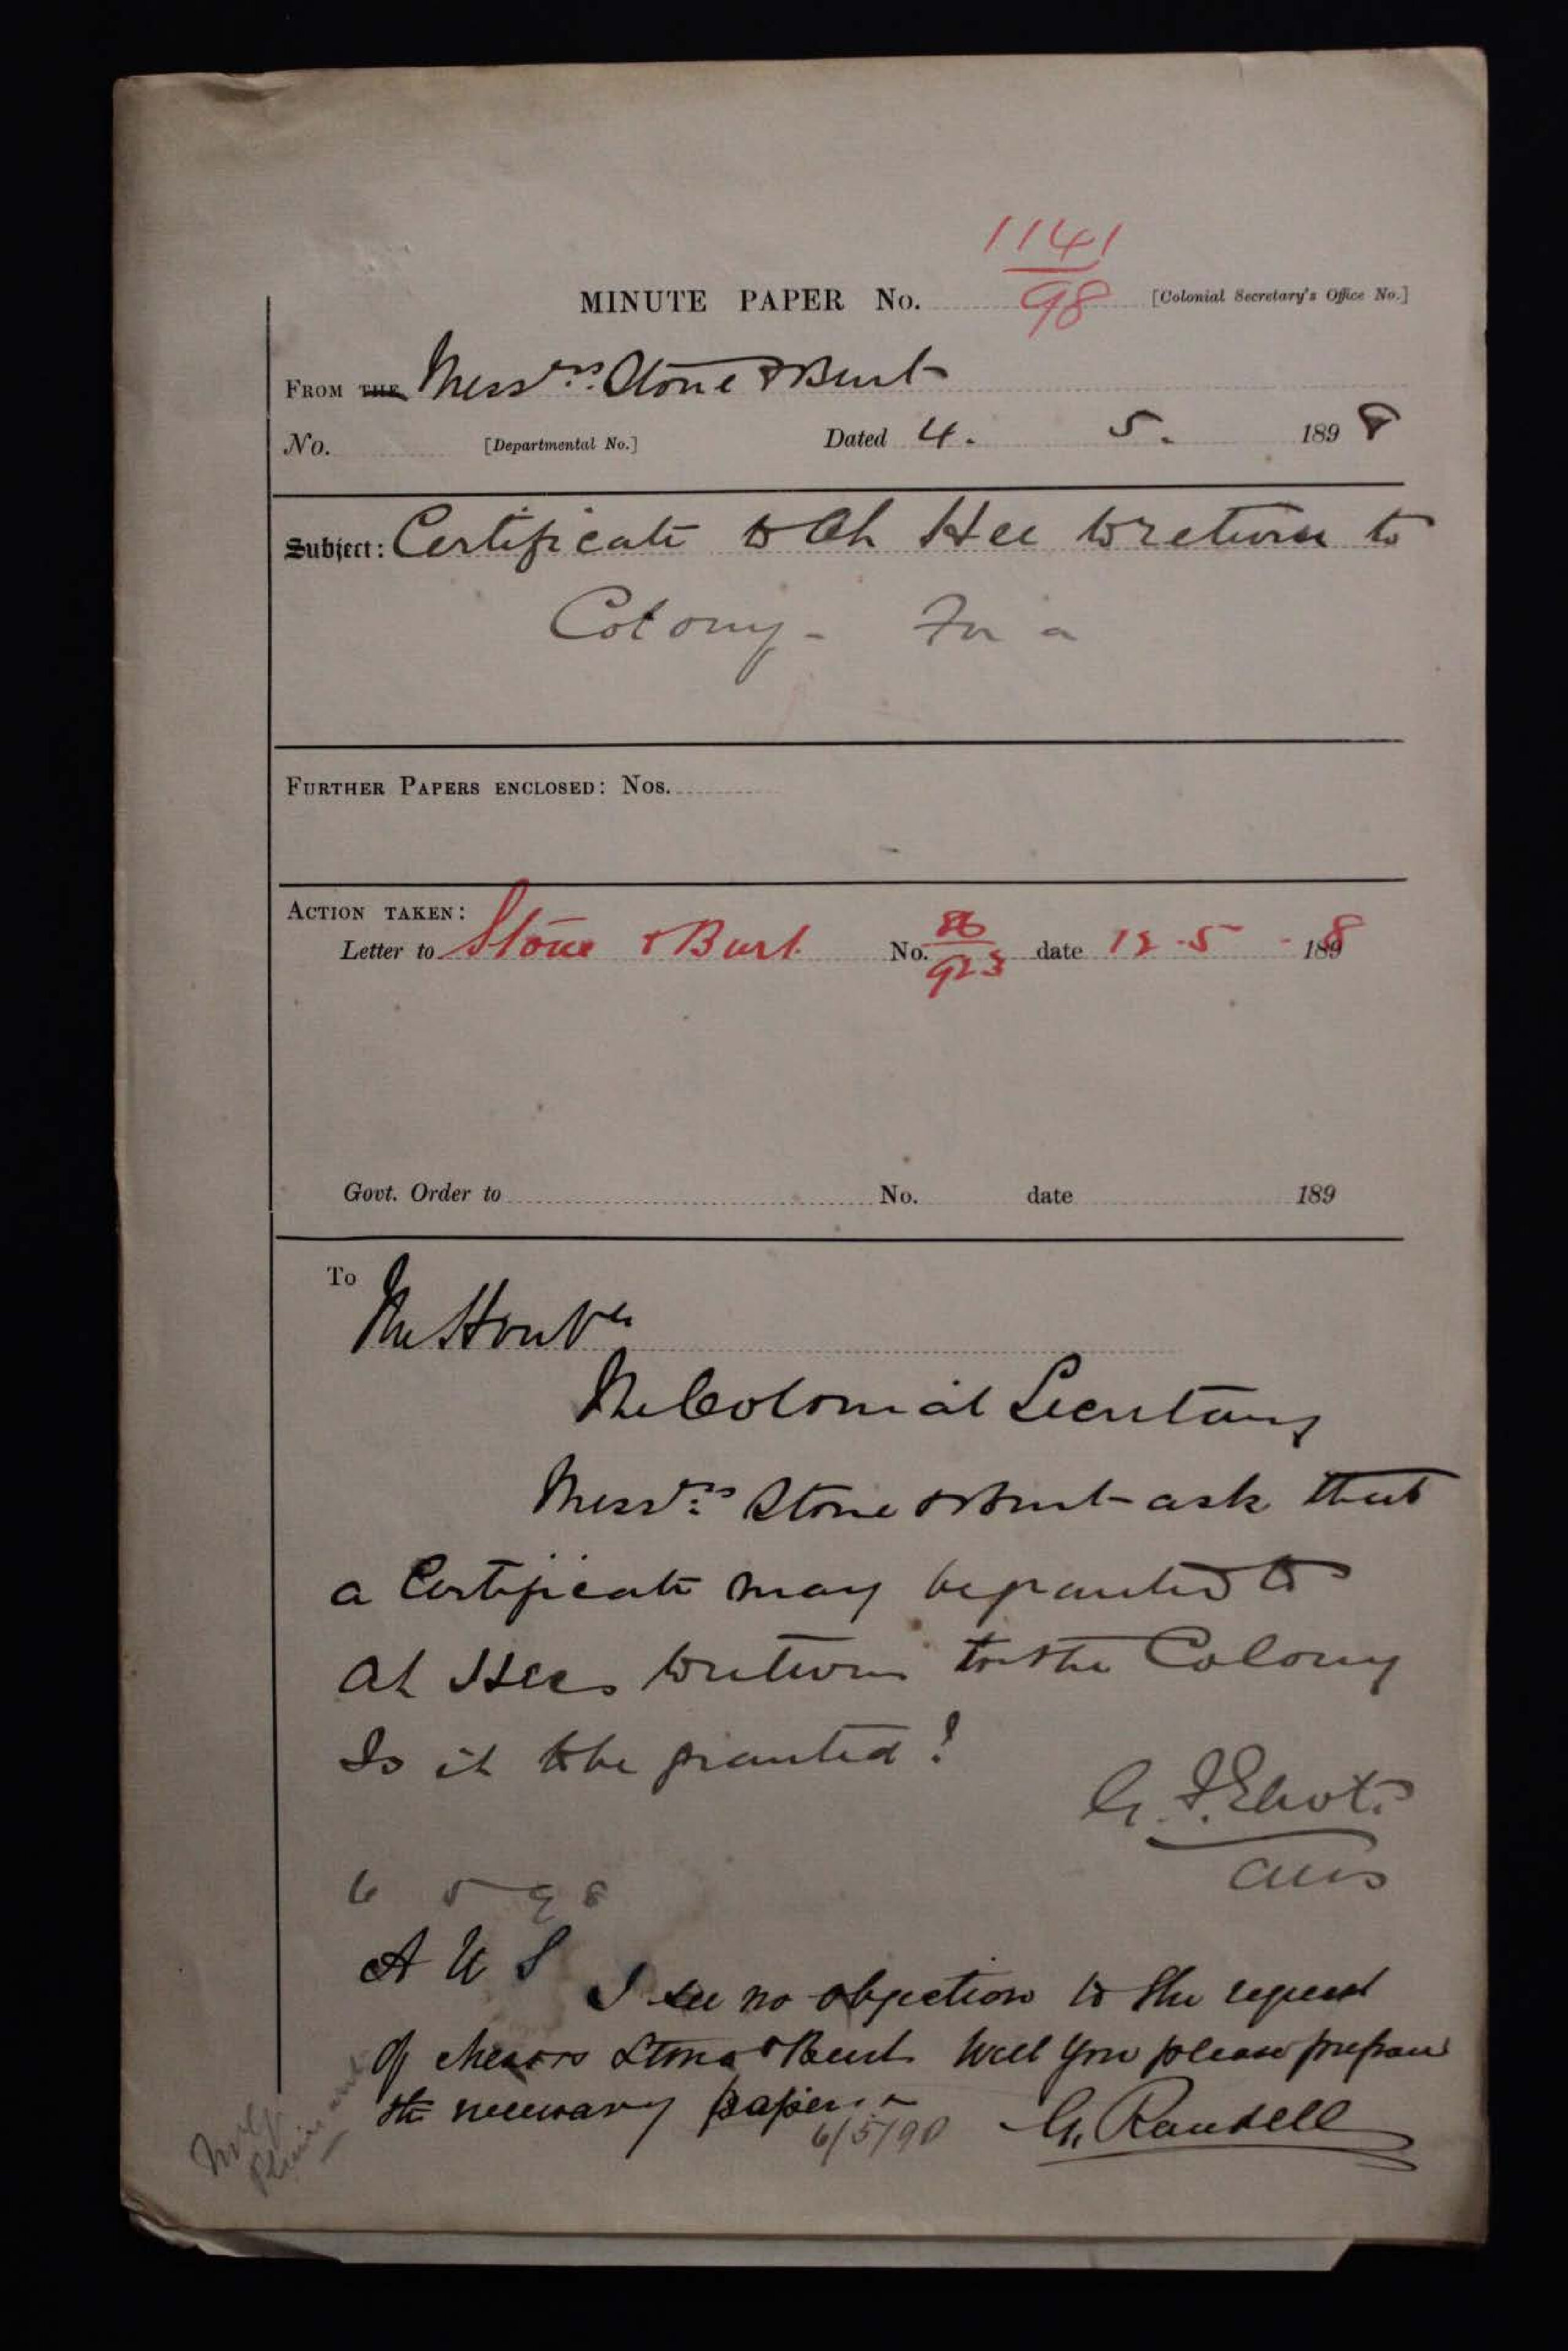 1141
98
MINUTE PAPER No. [Colonial Secretary's Office No.]
FROM THE Messrs. Stone & Burt
No. [Departmental No.] Dated 4. 5. 1898
Subject: Certificate to Ah Hee to return to
Colony - For a
FURTHER PAPERS ENCLOSED: Nos.
ACTION TAKEN:
Letter to Stone & Burt No. 86/923 date 12.5 - 1898
Govt. Order to No. date 189
To
The Honble
The Colonial Secretary
Messrs. Stone & Burt ask that
a Certificate may be granted to
Ah Hee to return to the Colony
Is it to be granted?
G. F. Eliot.
AUS
6 5 98
A U S
I see no objection to the request
of Messrs Stone & Burt Will you please prepare
the necessary papers
6/5/98 G. Randell